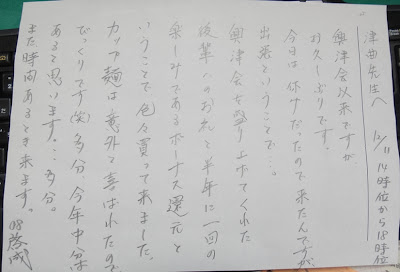 津曲先生へ 12/11 14時位から18時位
奥津会以来ですが
お久しぶりです。
今日は休みだったので来たんですが、
出張ということで…。
奥津会を盛り上げてくれた
後輩へのお礼と半年に一回の
楽しみであるボーナス還元と
いうことで色々買って来ました。
カップ麺は意外と喜ばれたので
びっくりです(笑)多分、今年中分は
あると思います。…多分。
また時間あるとき来ます。
啓成